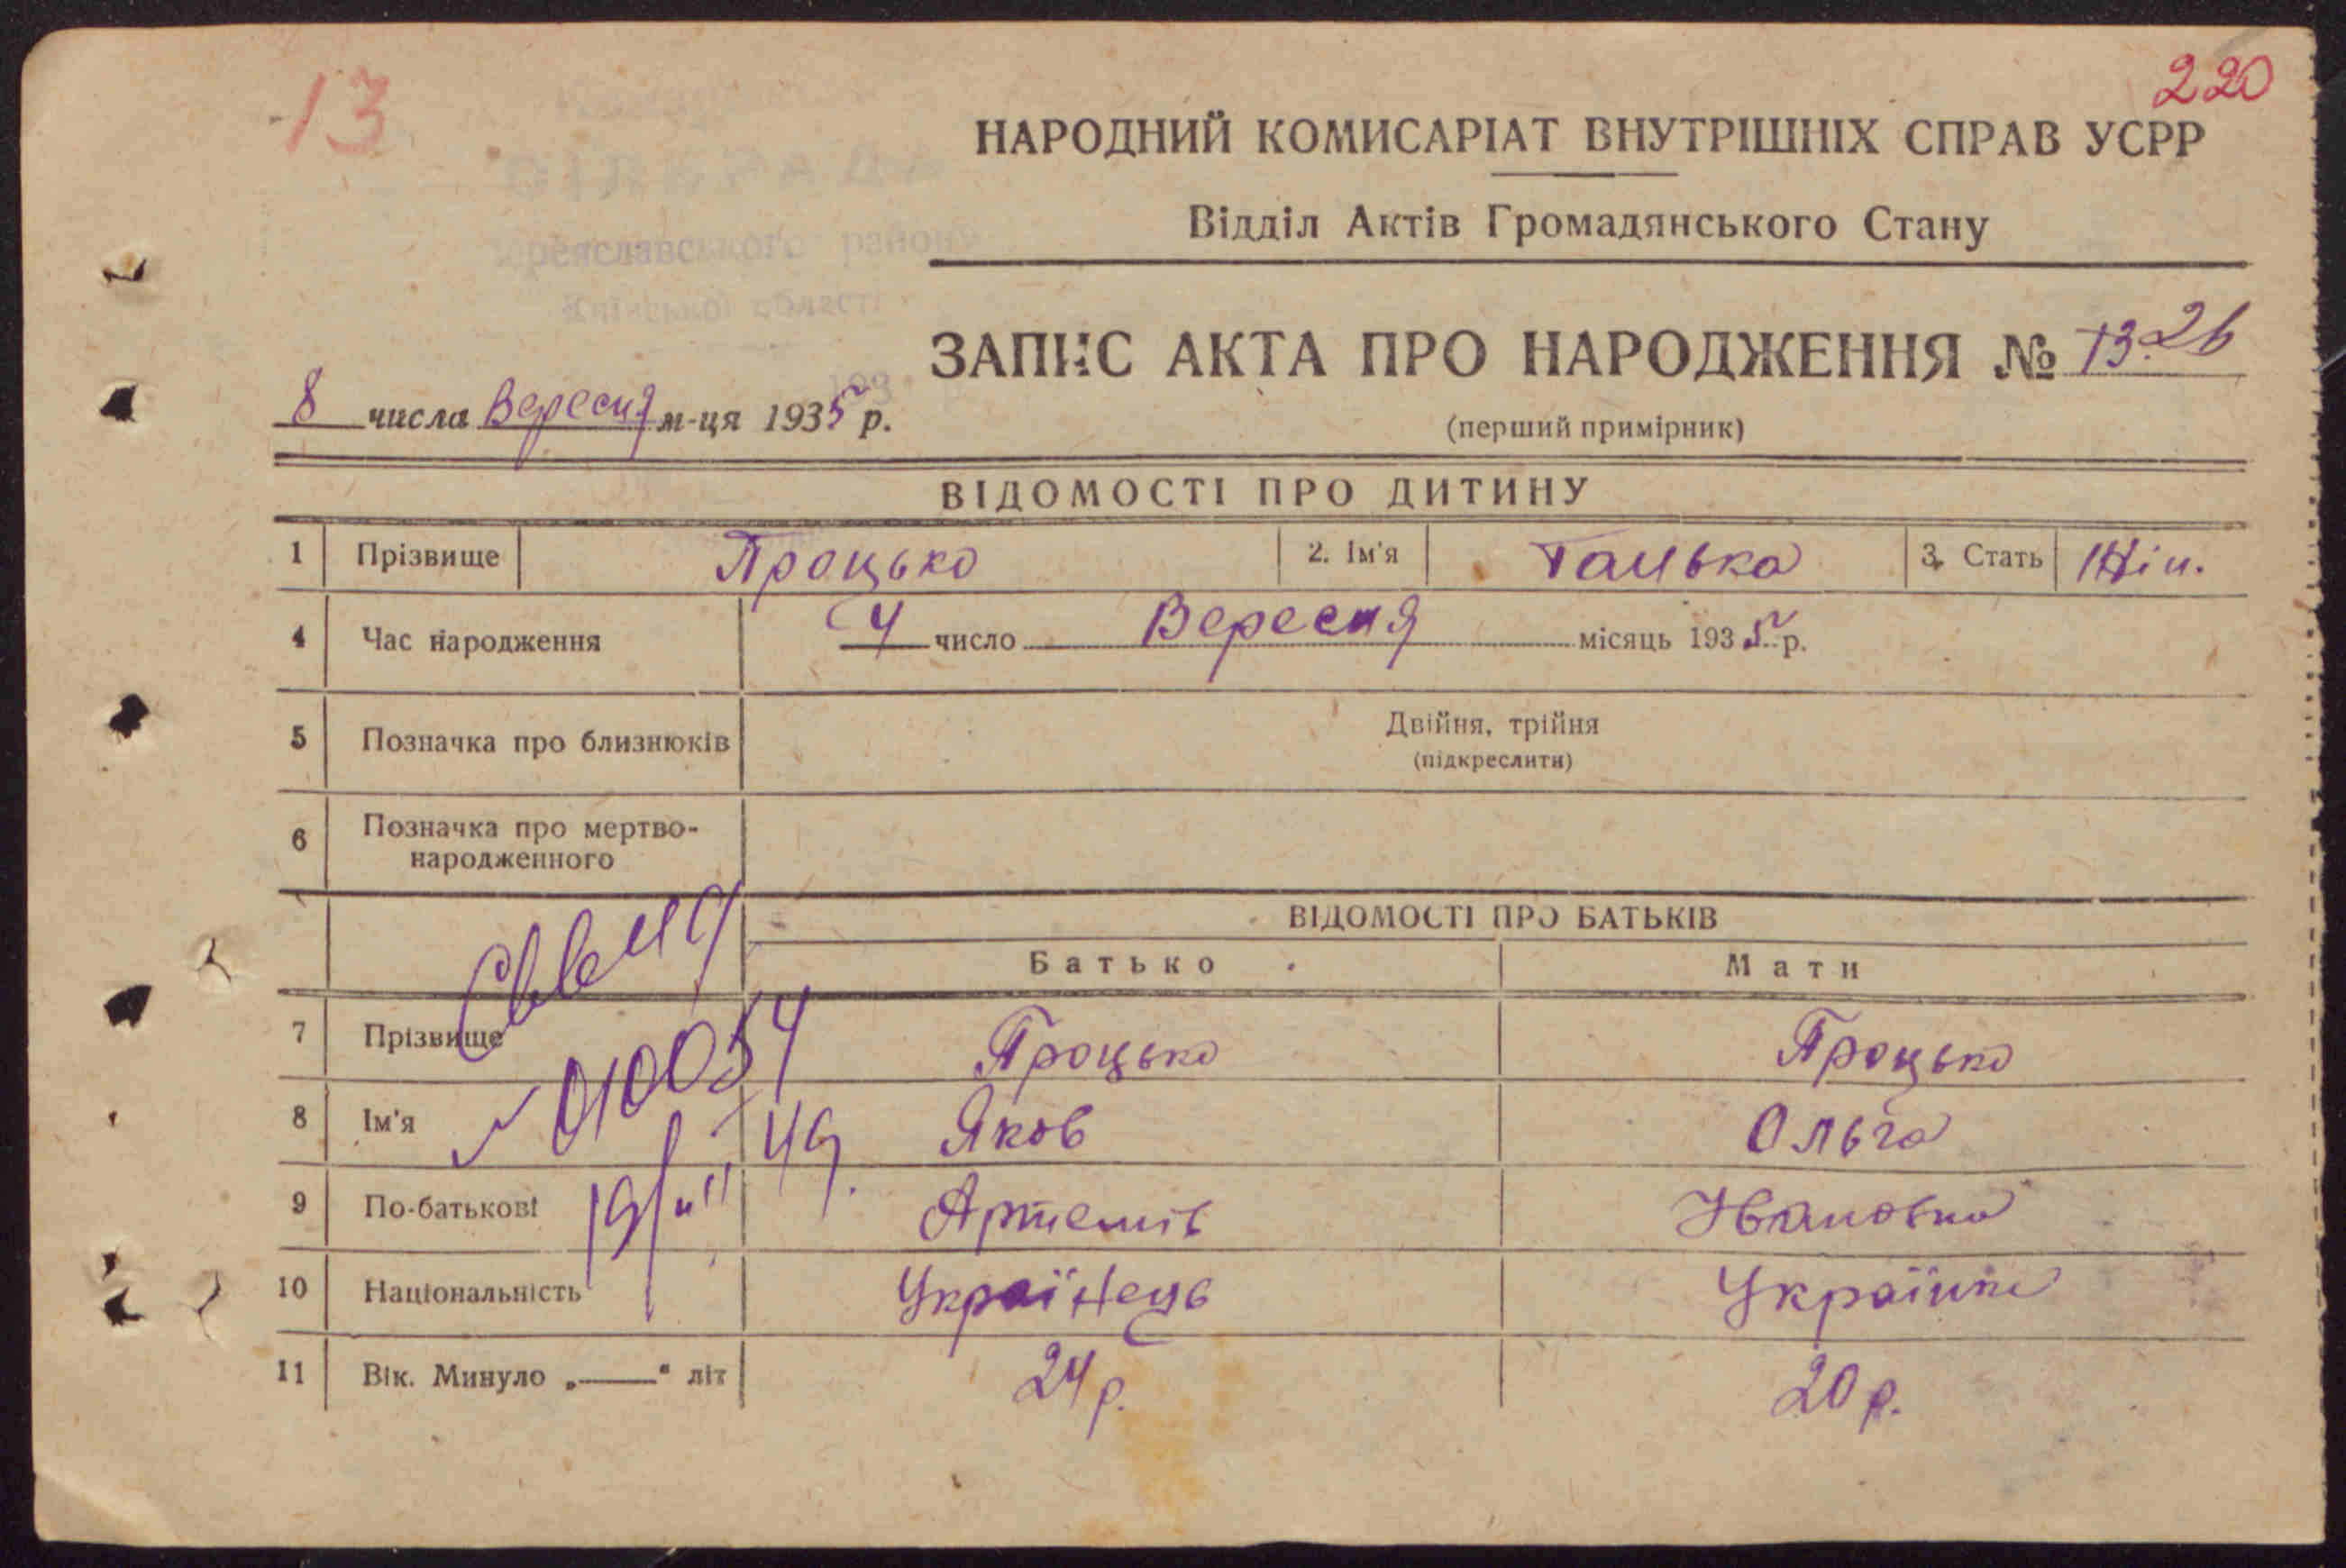 13
220
НАРОДНИЙ КОМИСАРІАТ ВНУТРІШНІХ СПРАВ УСРР
Відділ Актів Громадянського Стану
реяславського району
Київської області
ЗАПИС АКТА ПРО НАРОДЖЕННЯ № 13.26
8 числа Вересня м-ця 1935 р.
(перший примірник)
ВІДОМОСТІ ПРО ДИТИНУ
1 Прізвище Процько 2. Ім'я Галька 3. Стать Жін.
4 Час народження 4 число Вересня місяць 1935 р.
5 Позначка про близнюків Двійня, трійня
(підкреслити)
6 Позначка про мертво-
народженного
ВІДОМОСТІ ПРО БАТЬКІВ
Батько Мати
7 Прізвище Процько Процько
8 Ім'я Яков Ольга
9 По-батькові Артемів Івановна
10 Національність Українець Українка
11 Вік. Минуло „—“ літ 24 р. 20 р.
010054